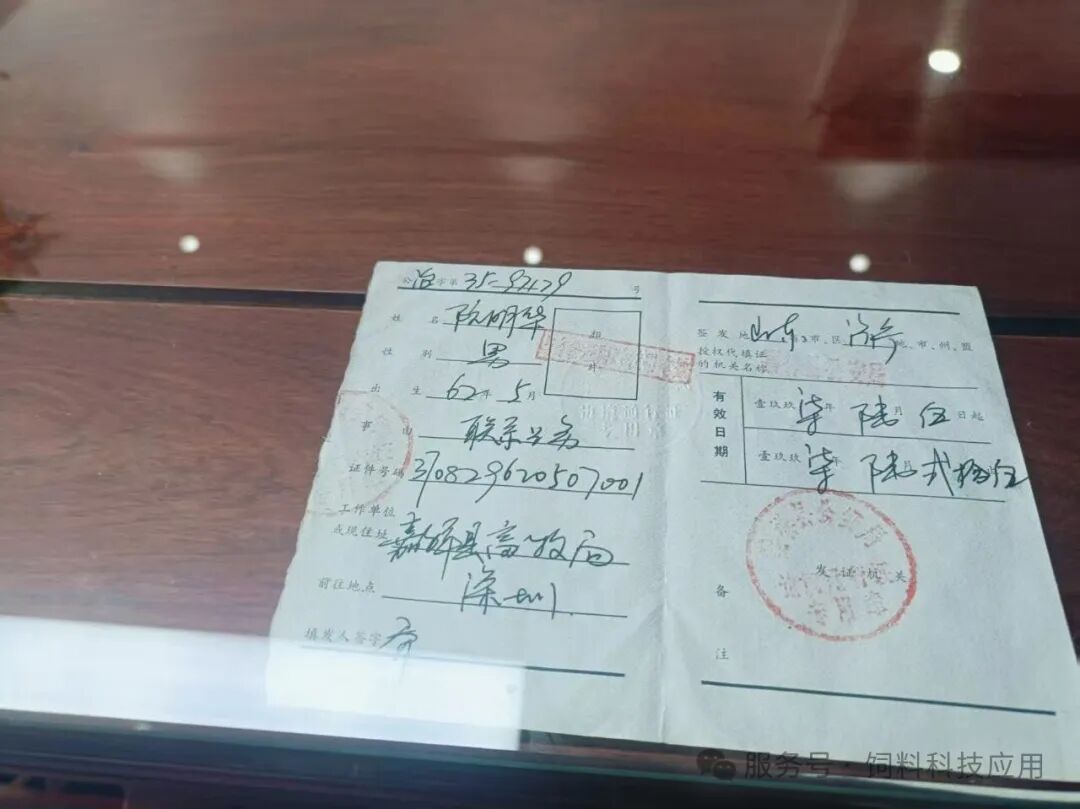 公治字第35-92179号
姓名 阮明华
性别 男
出生 62年5月
事由 联系业务
证件号码 370829620507001
工作单位
或现住址 嘉祥县畜牧局
前往地点 深圳
填发人签字
相片
边防通行证
专用章
签发地 山东省、市、区 济宁 地、市、州、盟
授权代填证
的机关名称
有效日期
壹玖玖柒年陆月伍日起
壹玖玖柒年陆月贰拾伍
发证机关
专用章
备注
服务号·饲料科技应用